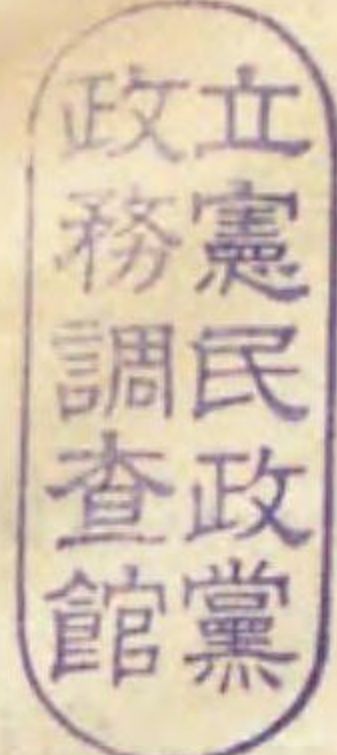 立憲民政黨
政務調査館